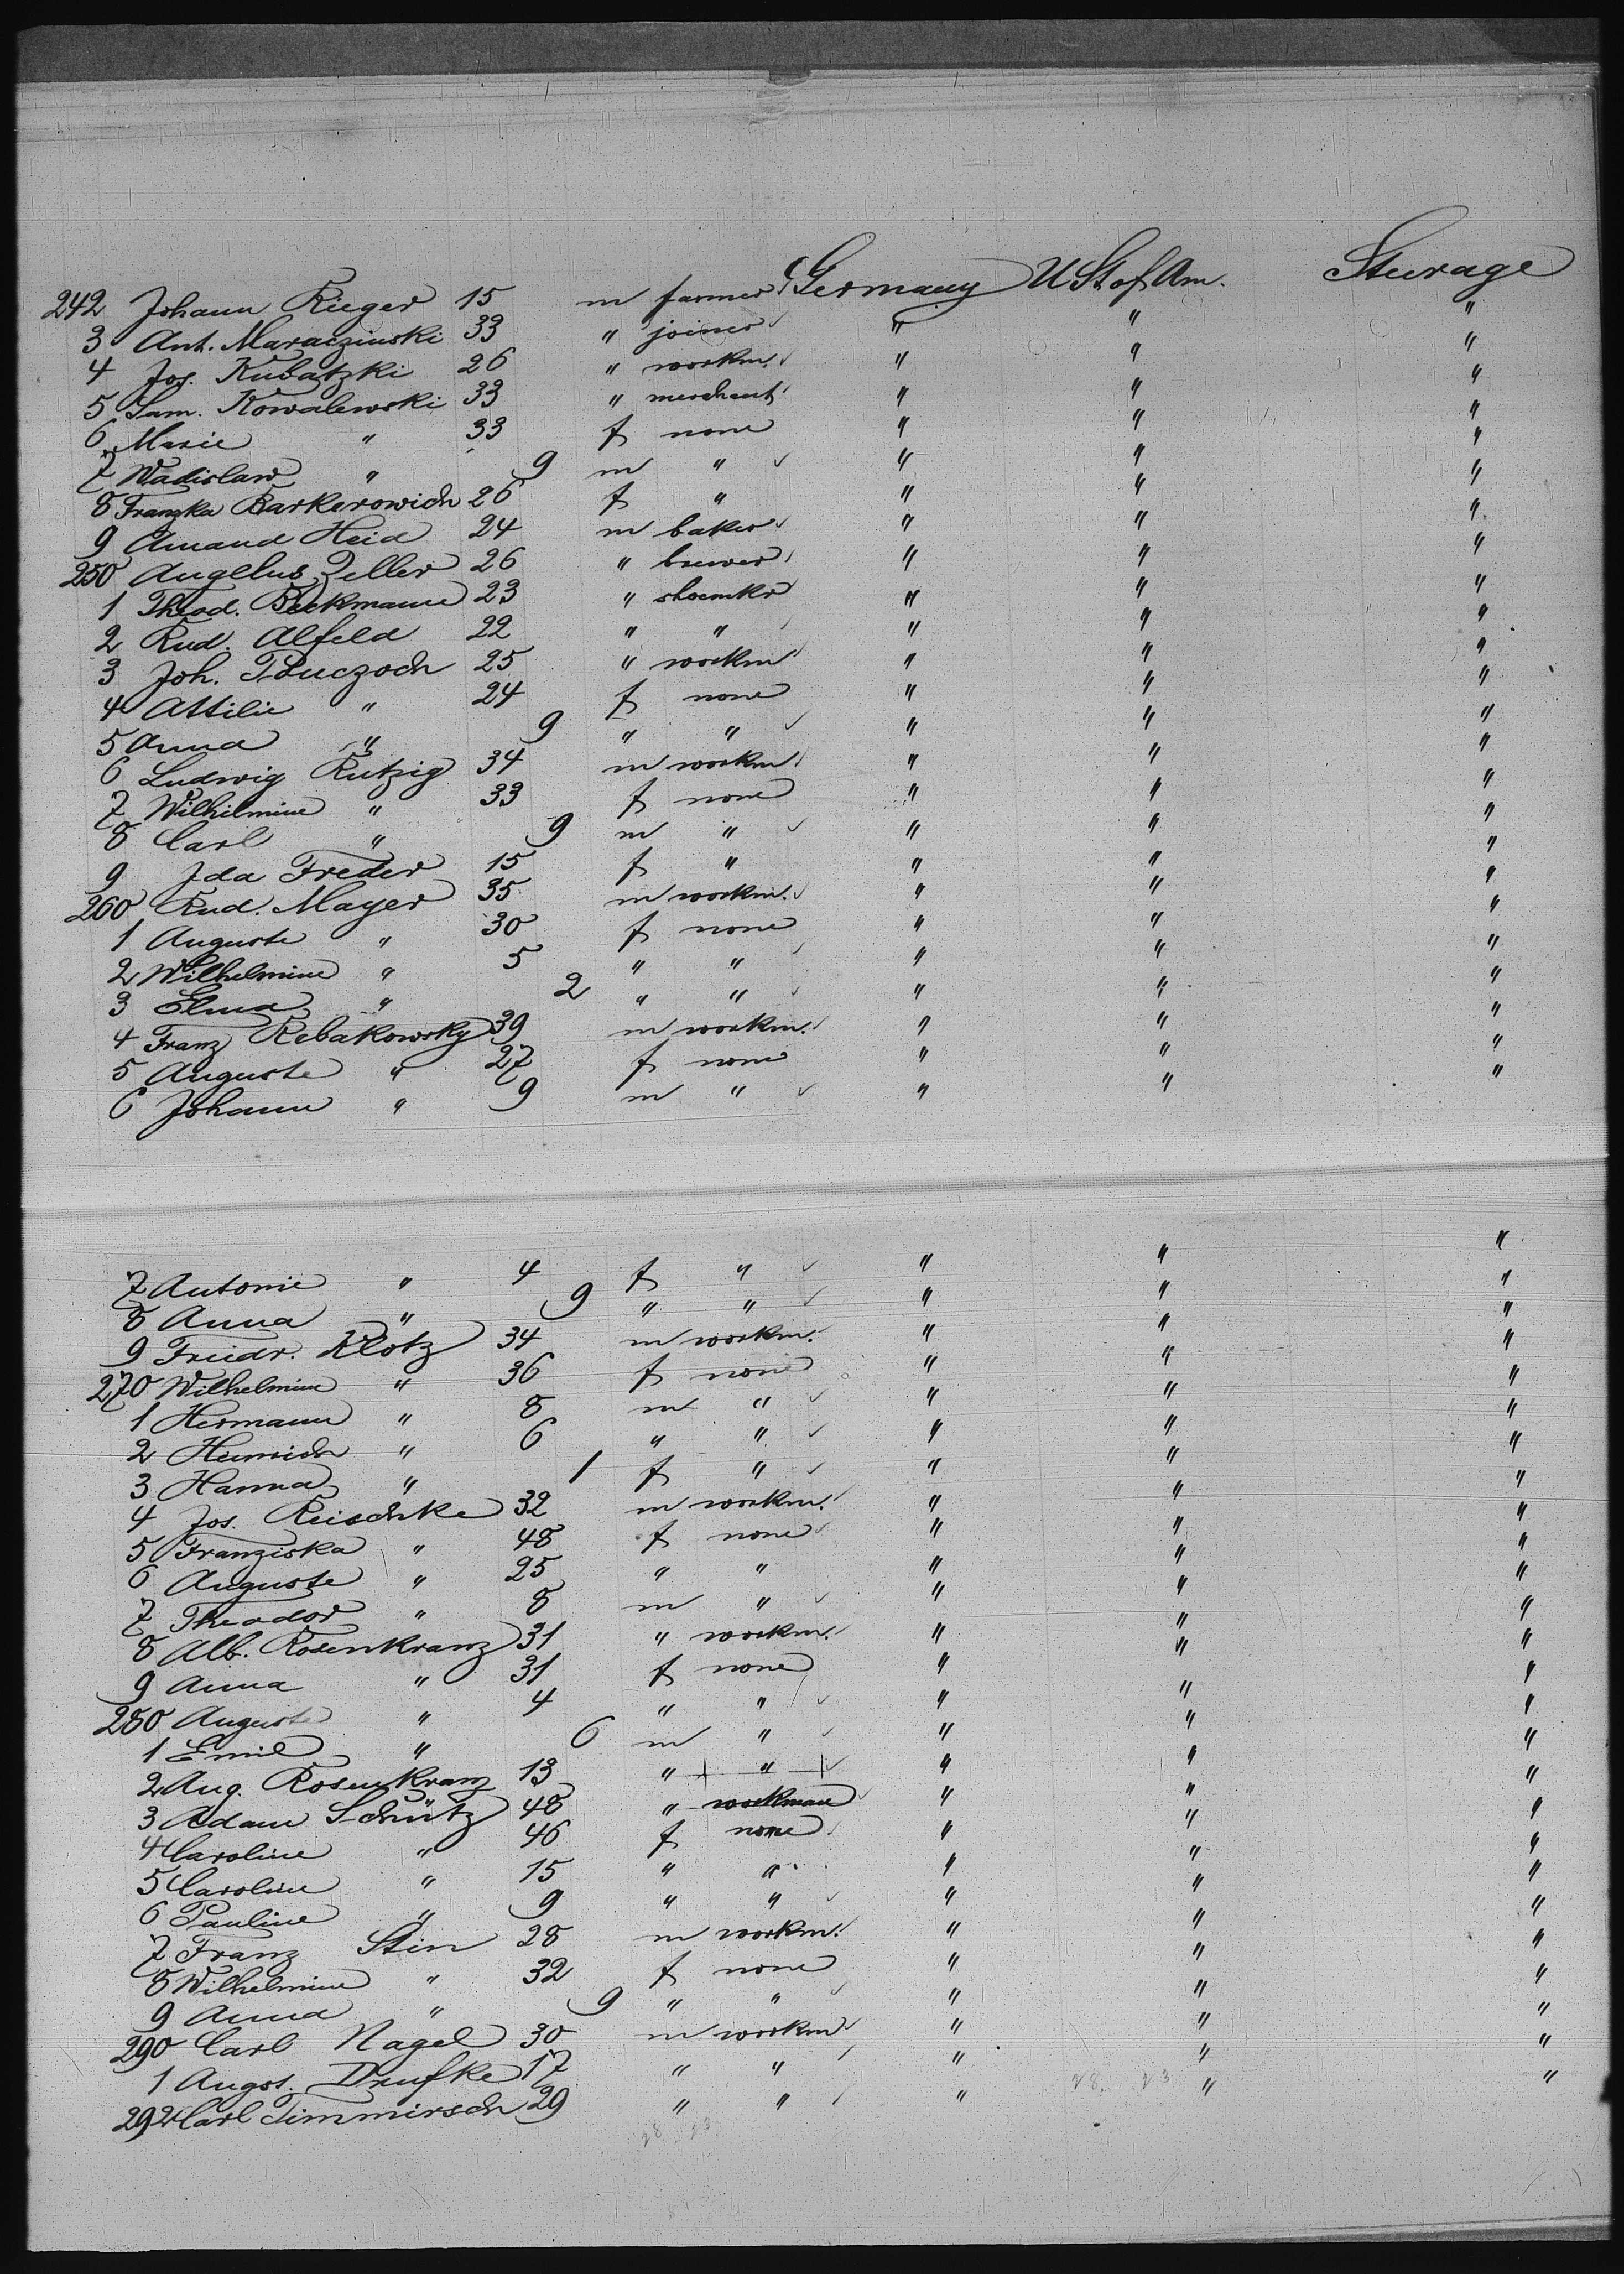 242 Johann Rieger 15 m farmer Germany U St of Am. Steerage
3 Ant. Maraczinski 33 " joiner " " "
4 Jos. Kubatzki 26 " workm. " " "
5 Sam. Kowalewski 33 " merchant " " "
6 Marie " 33 f none " " "
7 Wadislaw " 9 m " " " "
8 Franzka Barkerowich 26 f " " " "
9 Amand Heid 24 m baker " " "
250 Angelus Zeller 26 " brewer " " "
1 Theod. Beekmann 23 " shoemkr " " "
2 Rud. Alfeld 22 " " " " "
3 Joh. Pluczoch 25 " workm " " "
4 Attilie " 24 f none " " "
5 Anna " 9 " " " " "
6 Ludwig Rutzig 34 m workm " " "
7 Wilhilmine " 33 f none " " "
8 Carl " 9 m " " " "
9 Ida Freder 15 f " " " "
260 Rud. Mayer 35 m workm. " " "
1 Auguste " 30 f none " " "
2 Wilhelmine " 5 " " " " "
3 Elma " 2 " " " " "
4 Franz Rebakowsky 39 m workm. " " "
5 Auguste " 27 f none " " "
6 Johann " 9 m " " " "
7 Antonie " 4 f " " " "
8 Anna " 9 " " " " "
9 Friedr. Klotz 34 m workm. " " "
270 Wilhelmine " 36 f none " " "
1 Hermann " 8 m " " " "
2 Heinrich " 6 " " " " "
3 Hanna " 1 f " " " "
4 Jos. Reischke 32 m workm. " " "
5 Franziska " 48 f none " " "
6 Auguste " 25 " " " " "
7 Theodor " 8 m " " " "
8 Alb. Rosenkranz 31 " workm. " " "
9 Anna " 31 f none " " "
280 Auguste " 4 " " " " "
1 Emil " 6 m " " " "
2 Aug. Rosenkranz 13 " " " " "
3 Adam Schütz 48 " workman " " "
4 Caroline " 46 f none " " "
5 Caroline " 15 " " " " "
6 Pauline " 9 " " " " "
7 Franz Stin 28 m workm. " " "
8 Wilhelmine " 32 f none " " "
9 Anna " 9 " " " " "
290 Carl Nagel 30 m workm " " "
1 Augst. Drufke 17 " " " " "
292 Carl Timmirsch 29 " " " " "